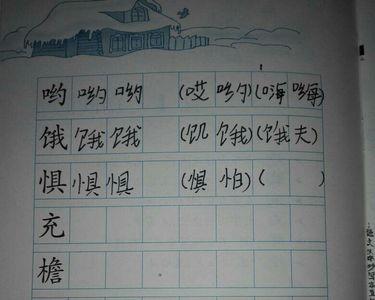 哟 哟 哟 (哎 哟)(嗨
饿 饿 饿 (饥 饿)(饿 夫)
惧 惧 惧 (惧 怕)( )
充
檐